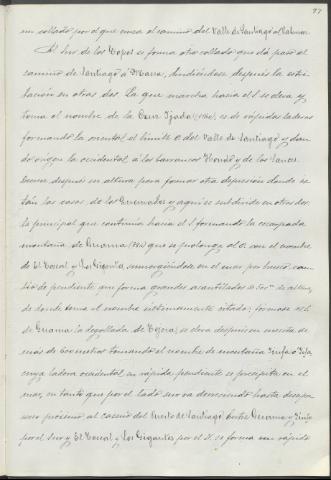 97
un collado por el que cruza el camino del Valle de Santiago al Palmar.
Al Sur de los Topos se forma otro collado que dá paso al
camino de Santiago á Masca, dividiéndose después la estri-
bación en otras dos. La que marcha hacia el S se eleva y
toma el nombre de la Cruz Fijada; es de rápidas laderas
formando la oriental el límite O del Valle de Santiago y dan-
do origen la occidental á los barrancos Hondo y de los Sauces
Crece después en altura para formar otra depresión donde es-
tán las casas de los Quemados y aquí se subdivide en otras dos.
La principal que continúa hacia el S formando la escarpada
montaña de Guama que se prolonga al O. con el nombre
de El Toscal y Los Gigantes, sumergiéndose en el mar por brusco cam-
bio de pendiente que forma grandes acantilados de 500 m de altura,
de donde toma el nombre últimamente citado; formase al S
de Guama la degollada de Tejera; se eleva después en cuesta de
más de 600 metros tomando el nombre de montaña
cuya ladera occidental, en rápida pendiente se precipita en el
mar, en tanto que por el lado sur va descendiendo hasta desapa-
recer próximo al caserío del Puerto de Santiago. Entre Guama y
por el Sur y El Toscal y Los Gigantes por el N. se forma un rápido